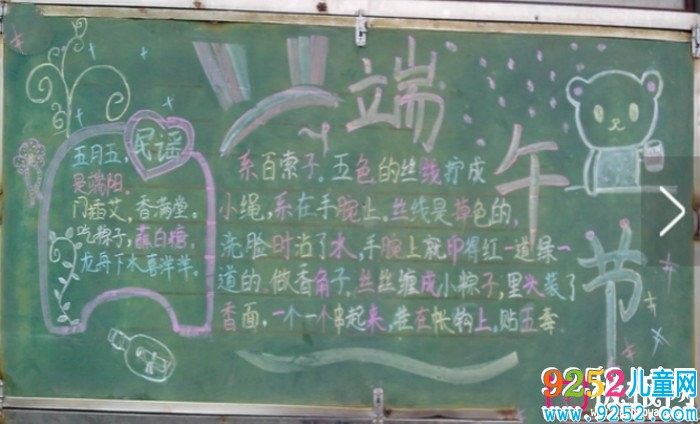 端午节
民谣
五月五,
是端阳。
门插艾,香满堂。
吃粽子,蘸白糖。
龙舟下水喜洋洋。
系百索子。五色的丝线拧成
小绳,系在手腕上,丝线是掉色的,
洗脸时沾了水,手腕上就印得红一道绿一
道的。做香角子,丝丝缠成小粽子,里头装了
香面,一个一个串起来,挂在帐钩上,贴五毒
9252儿童网
www.9252.com